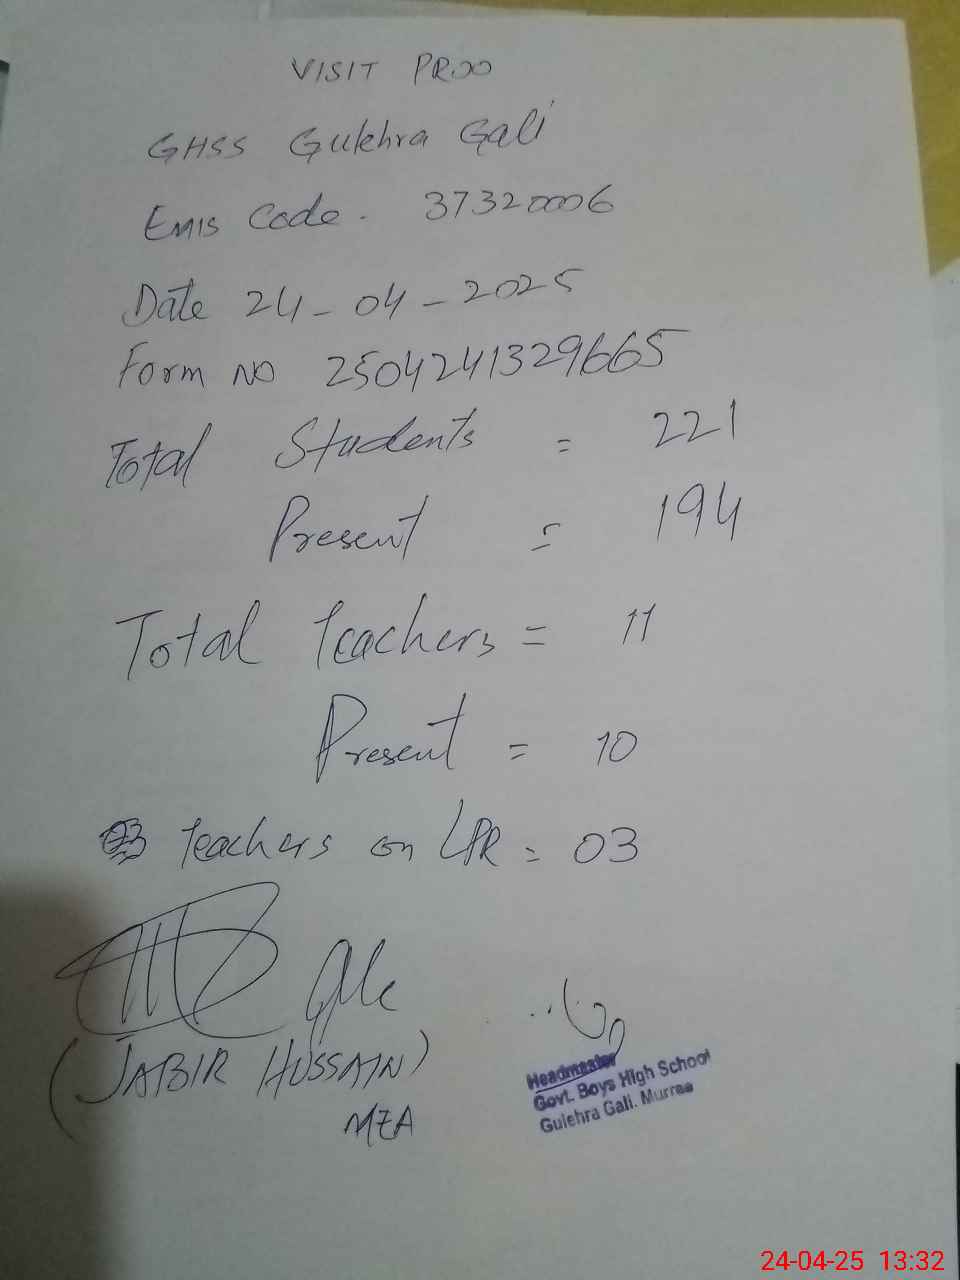 VISIT PROO
GHSS Gulehra Gali
EMIS Code. 37320006
Date 24-04-2025
Form NO 2504241329665
Total Students = 221
Present = 194
Total Teachers = 11
Present = 10
Teachers on LPR = 03
(JABIR HUSSAIN)
MEA
Headmaster
Govt. Boys High School
Gulehra Gali. Murree
24-04-25 13:32